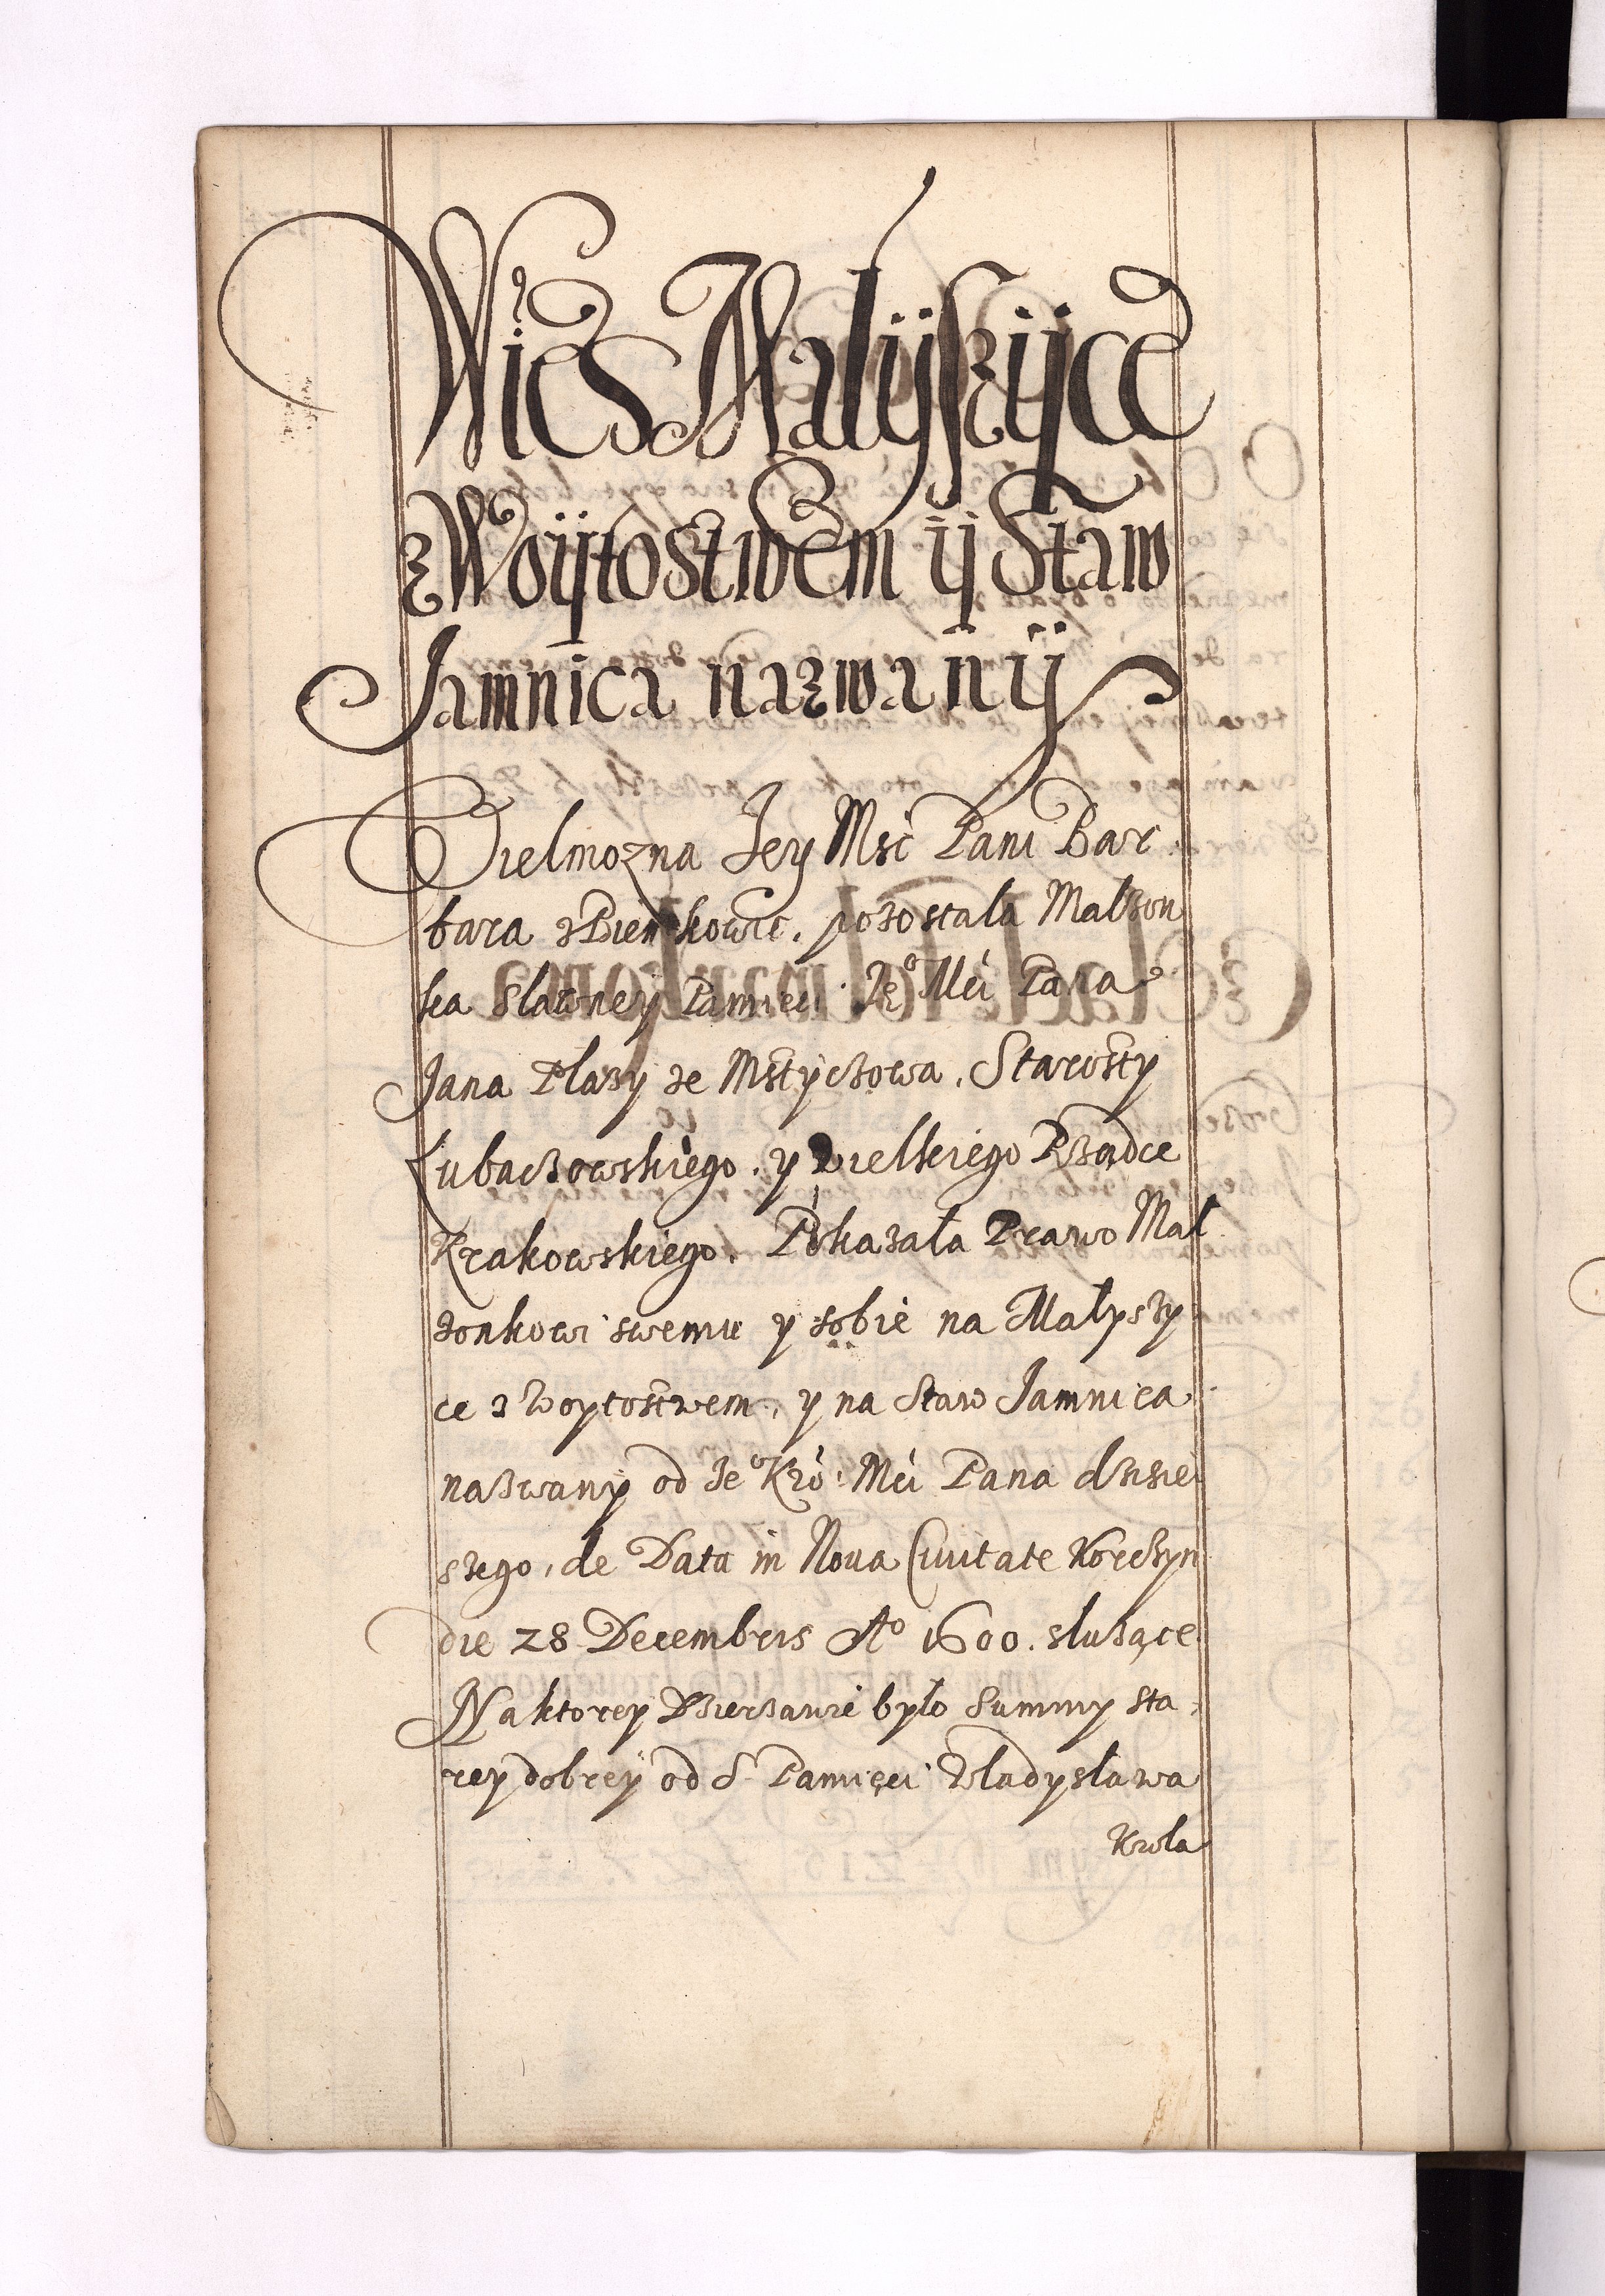 Wies Małÿszÿce
z Woÿtostwem ÿ Staw
Jamnica nazwanÿ
Wielmozna Jey Msć Pani Bar
bara z Bienkowic. pozostała Małzon
ka Sławney Pamieci Je° Mći Pana
Jana Płazy ze Mstyczowa. Starosty
Lubaczowskiego. y Wielkiego Rządce
Krakowskiego. Pokazała Prawo Mał
zonkowi swemu y sobie na Małyszy
ce z Woytostwem, y na Staw Jamnica
nazwany od Je° Kró: Mći Pana dzisiei
szego, de Data in Noua Ciuitate Korczyn
die 28 Decembris A° 1600. słuzące
Naktorey Dzierzawie było Summy sta,
rey dobrey od S. Pamięci Władysława
Krola